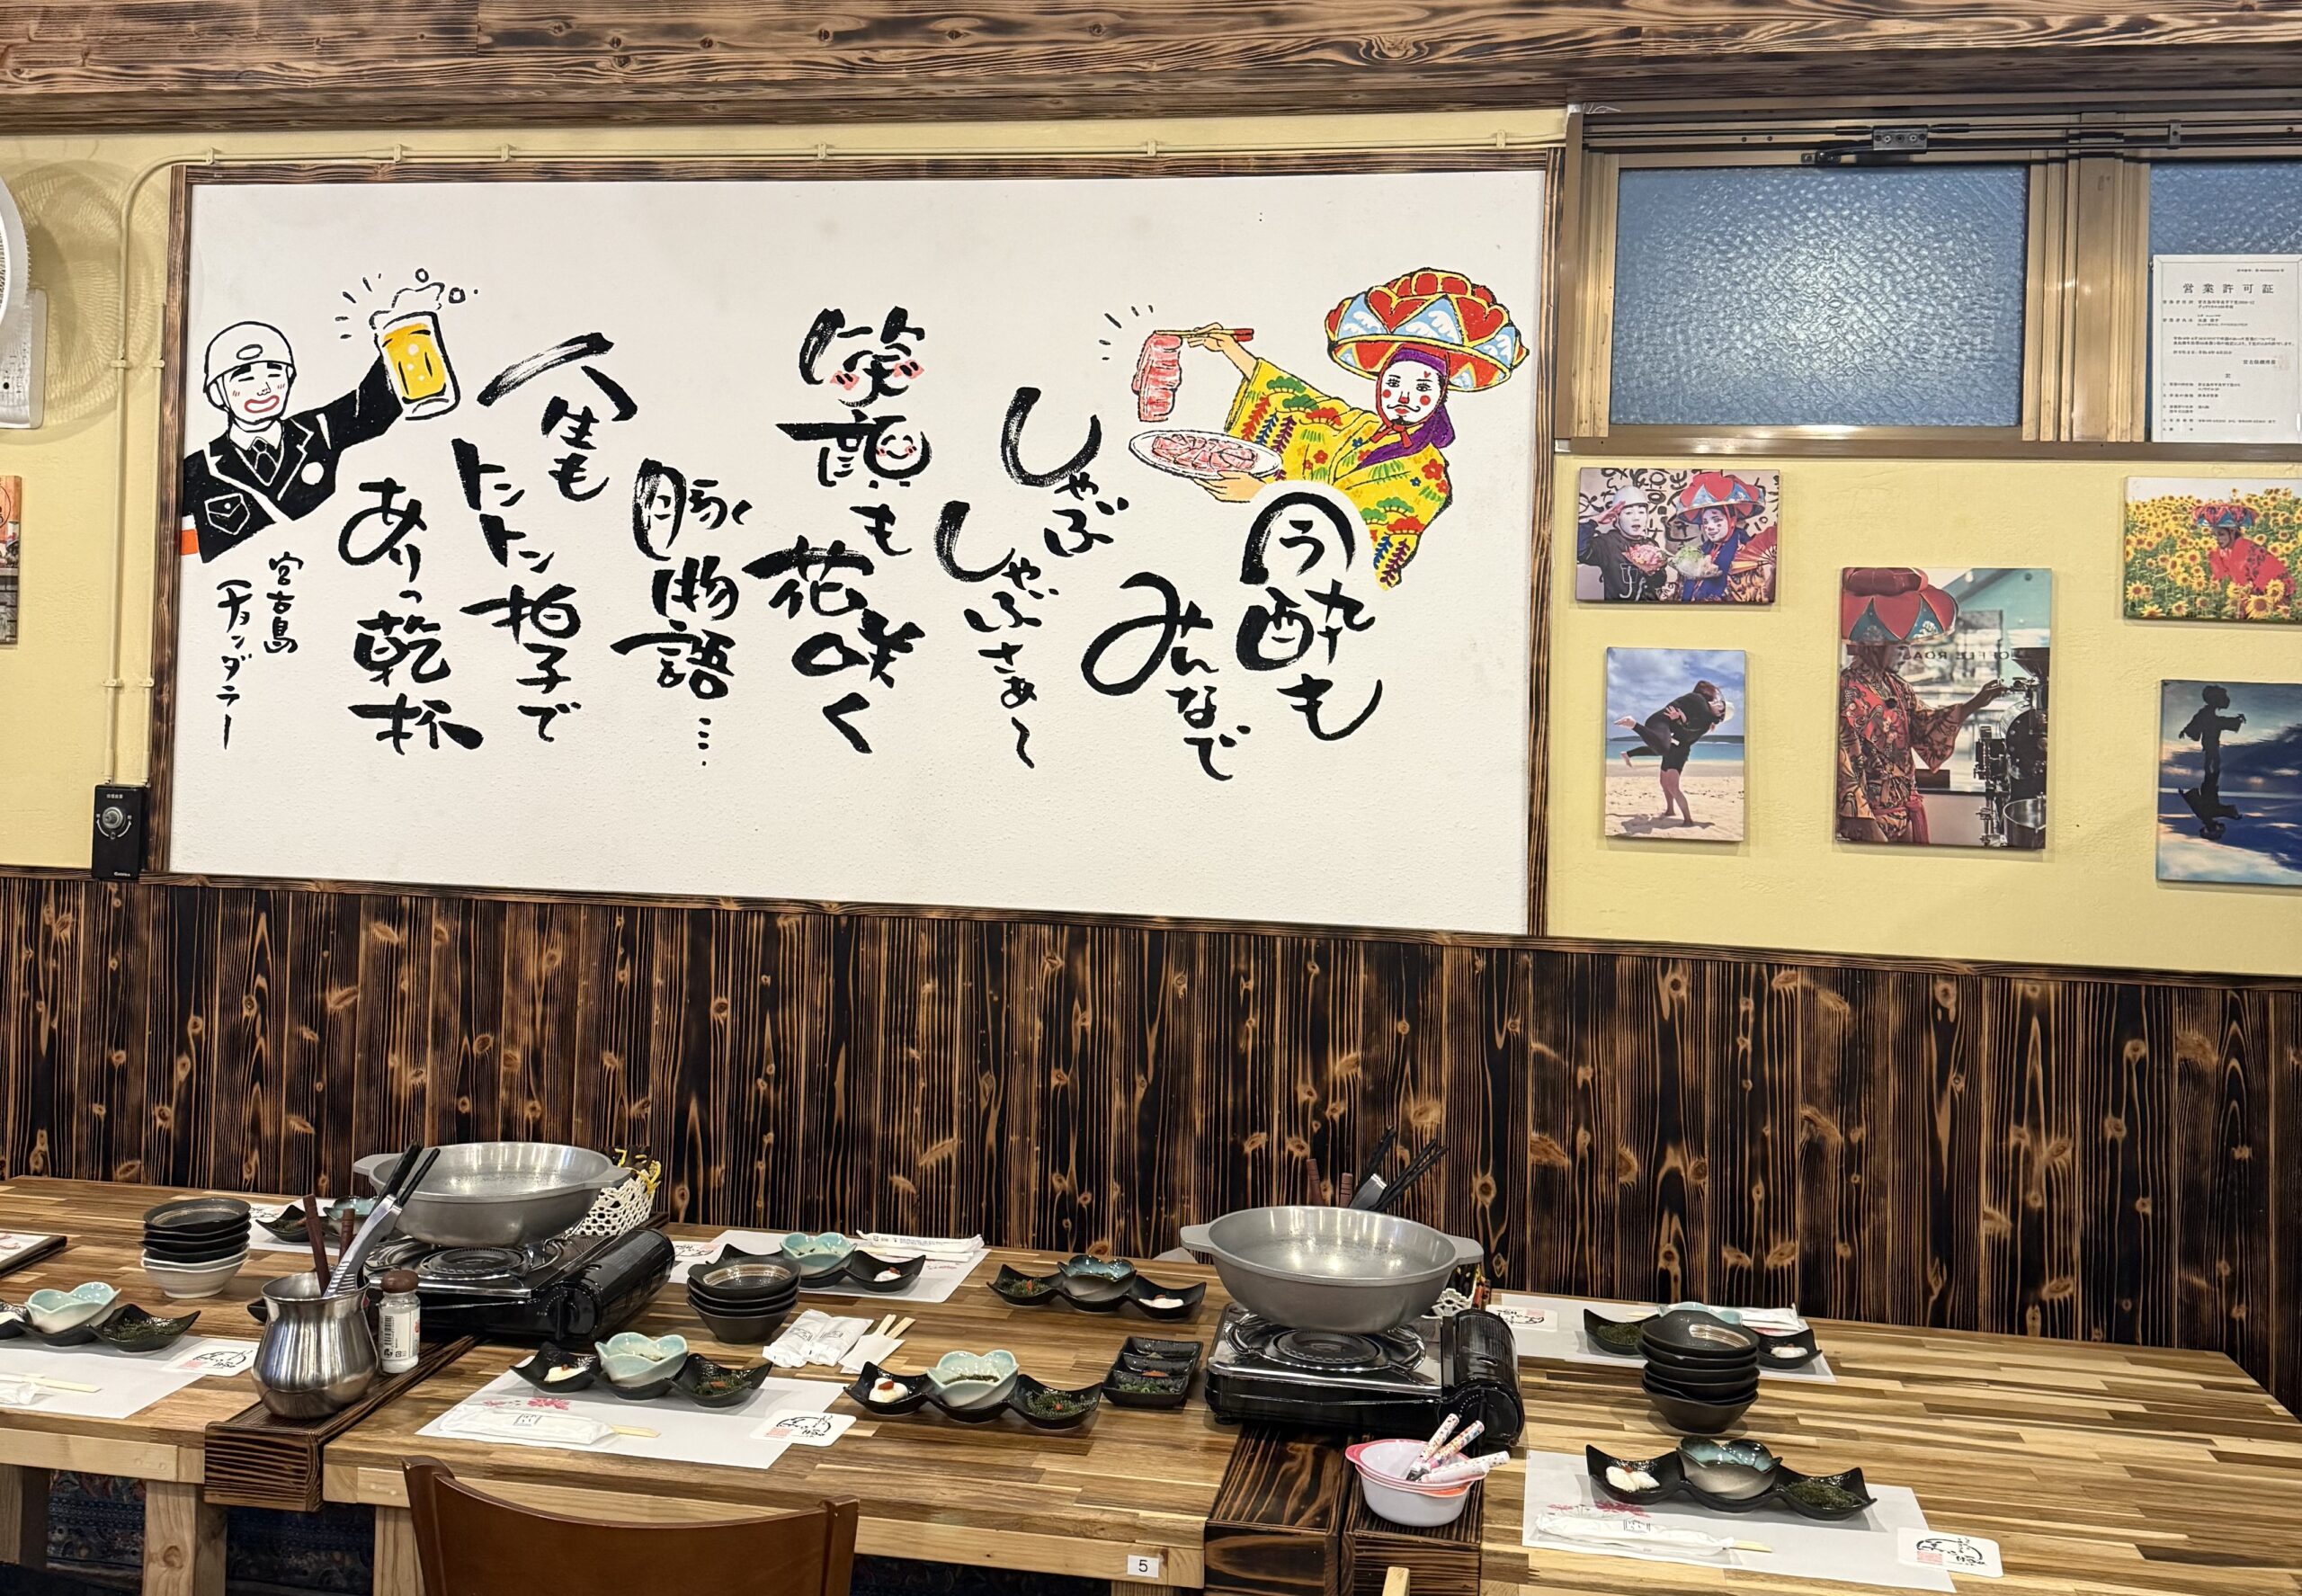 今酔も
みんなで
しゃぶ
しゃぶさぁ〜
笑顔も
花咲く
豚く物語…
人生も
トントン拍子で
ありっ乾杯
宮古島
チョンダラー
営業許可証
5